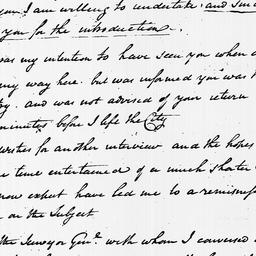 you. I am willing to undertake, and
you for the introduction.
was my intention to have seen you when
my way here. but was informed you was
and was not advised of your return
minutes before I left the City
wishes for another interview and the hopes
time entertained of a much shorter
now expect have led me to a
on the Subject
the Surveyor Genl. with whom I conversed